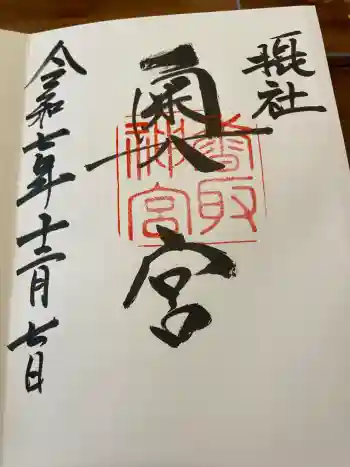 摂社
奥宮
香取
神宮
令和七年十二月七日